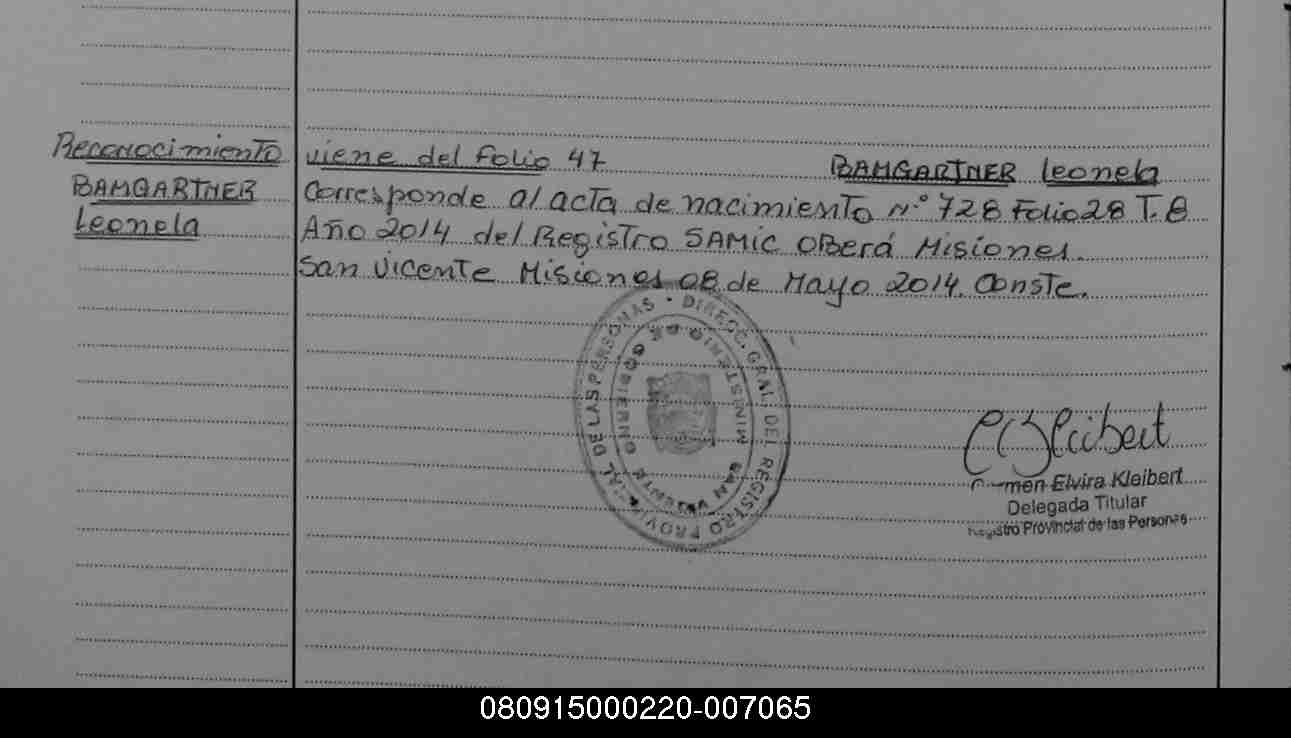 Reconocimiento
BAMGARTNER
Leonela
viene del Folio 47 BAMGARTNER Leonela
Corresponde al acta de nacimiento N° 728 Folio 28 T. 8
Año 2014 del Registro SAMIC OBerá Misiones.
San Vicente Misiones 08 de Mayo 2014. Conste.
DIRECC. GRAL. DEL REGISTRO PROVINCIAL DE LAS PERSONAS
MINISTERIO DE GOBIERNO
SAN VICENTE
Carmen Elvira Kleibert
Delegada Titular
Registro Provincial de las Personas
080915000220-007065